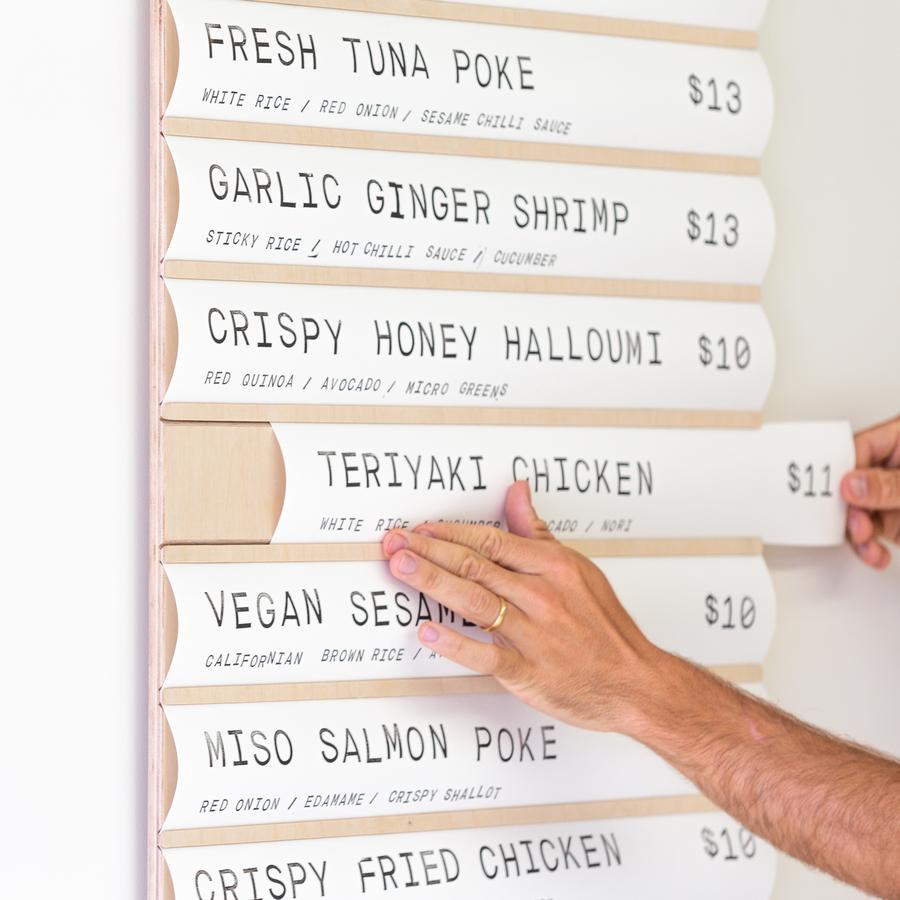 FRESH TUNA POKE $13
WHITE RICE / RED ONION / SESAME CHILLI SAUCE
GARLIC GINGER SHRIMP $13
STICKY RICE / HOT CHILLI SAUCE / CUCUMBER
CRISPY HONEY HALLOUMI $10
RED QUINOA / AVOCADO / MICRO GREENS
TERIYAKI CHICKEN $11
WHITE RICE / CUCUMBER / NORI
VEGAN SESAME $10
CALIFORNIAN BROWN RICE /
MISO SALMON POKE
RED ONION / EDAMAME / CRISPY SHALLOT
CRISPY FRIED CHICKEN $10